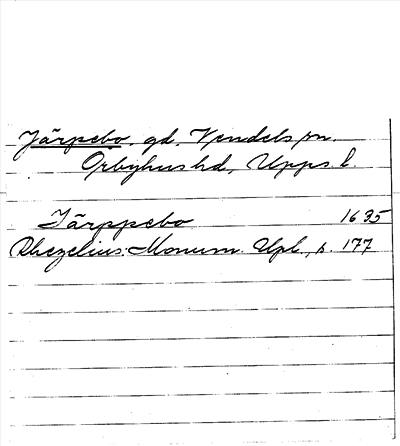 Järpebo. gd. Vendels sn.
Örbyhus hd, Upps. l.
Järppebo 1635
Rhezelius: Monum. Upl., s. 177